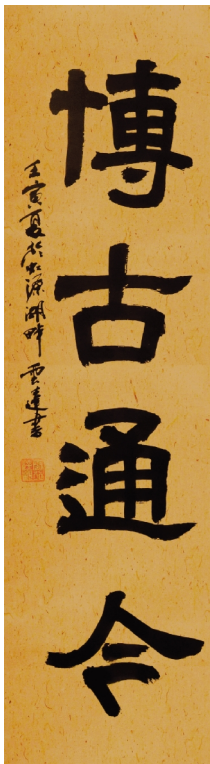 博古通今
壬寅夏於源湖畔 雲達書